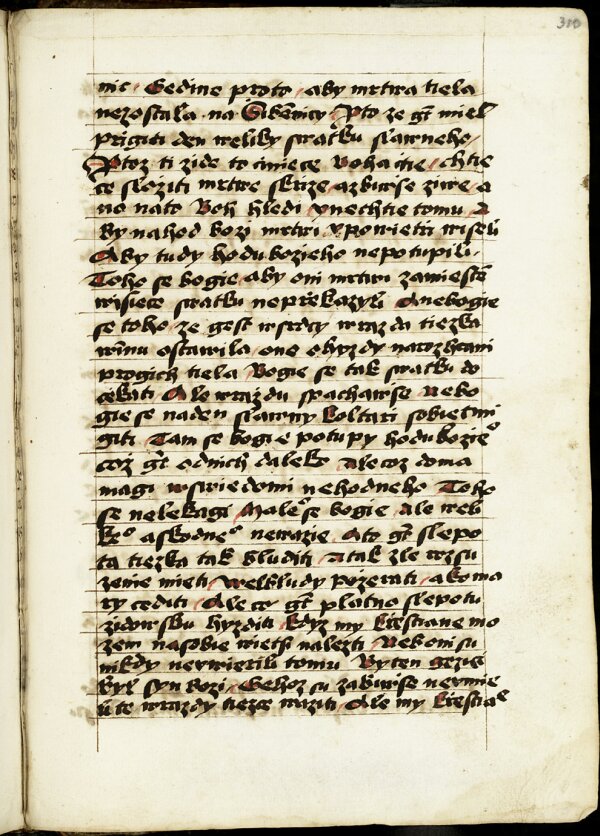 310
nic · Gedine proto · aby mrtwa tiela
nezostala na Sibenicy Pto ze gt miel
prigiti den weliky swatku slawneho
Ptoz ti zide to ciniece boha ctie chtie
ce sloziti mrtwe skrize azbiwse ziwe a
no nato Boh hledi ynechtie tomu A
by nahod bozi mrtwi ypowietri wiseli
Aby tudy hodu bozieho nepotupili
Toho se bogie aby oni mrtwi zamieste
wisiece swatku neprekazyli Anebogie
se toho ze gest wsrdcy wrazda tiezka
winu ostawila one ohyzdy
progich tiela Bogie se tak swatku do
cekati Ale wrazdu spachawse nebo
gie se naden slawny koltari sobietmi
giti Tam se bogie potupy hodu bozieo
coz gt odnich daleko Ale coz doma
magi wswiedomi nehodneho Toho
se nelekagi Maleo se bogie Ale welk
keo askodneo newazie Ato gt slepo
ta tiezka tak bluditi Atak zle rozsu
zenie mieti Welbludy pozerati akoma
ry cediti Ale co gt platno slepotu
zidowsku hyzditi kdyz my krestiane mo
zem nasobie wietsi nalezti Nebo oni su
nikdy newierili tomu By ten gezis
byl syn bozi Gehoz su zabiwse neumie
li te wrazdy tiezce waziti Ale my krestiae